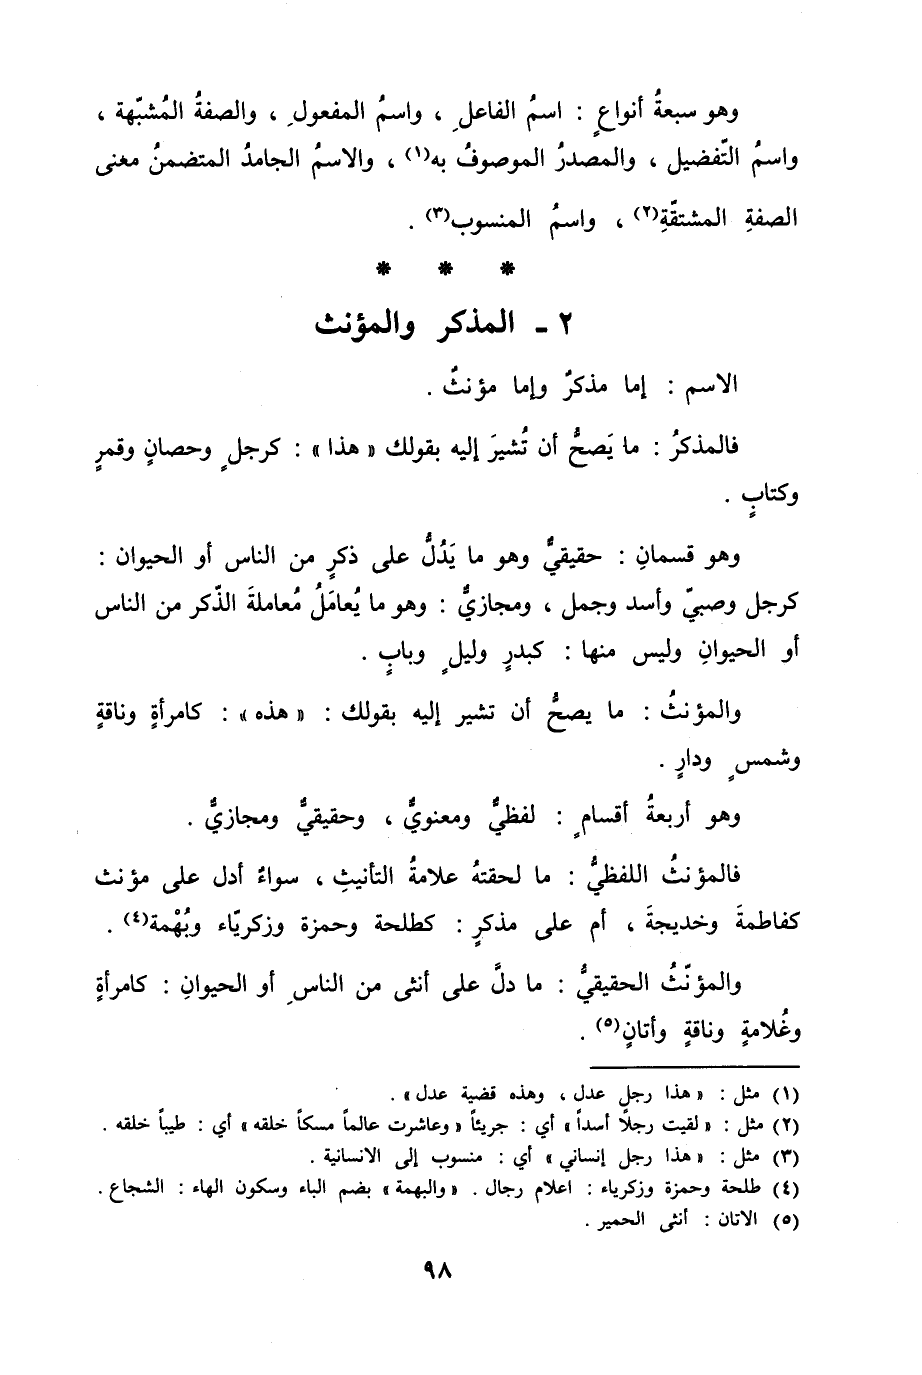 وهو سبعةُ أنواعٍ : اسمُ الفاعلِ ، واسمُ المفعولِ ، والصفةُ المُشبّهة ،
واسمُ التّفضيل ، والمصدرُ الموصوفُ به(١) ، والاسمُ الجامدُ المتضمنُ معنى
الصفةِ المشتقّةِ(٢) ، واسمُ المنسوب(٣) .
* * *
٢ - المذكر والمؤنث
الاسم : إما مذكرٌ وإما مؤنثٌ .
فالمذكرُ : ما يَصحُّ أن تُشيرَ إليه بقولك « هذا » : كرجلٍ وحصانٍ وقمرٍ
وكتابٍ .
وهو قسمانِ : حقيقيٌّ وهو ما يَدُلُّ على ذكرٍ من الناس أو الحيوان :
كرجل وصبيّ وأسد وجمل ، ومجازيٌّ : وهو ما يُعامَلُ مُعاملةَ الذّكر من الناس
أو الحيوانِ وليس منها : كبدرٍ وليلٍ وبابٍ .
والمؤنثُ : ما يصحُّ أن تشير إليه بقولك : « هذه » : كامرأةٍ وناقةٍ
وشمسٍ ودارٍ .
وهو أربعةُ أقسامٍ : لفظيٌّ ومعنويٌّ ، وحقيقيٌّ ومجازيٌّ .
فالمؤنثُ اللفظيُّ : ما لحقتهُ علامةُ التأنيثِ ، سواءٌ أدل على مؤنث
كفاطمةَ وخديجةَ ، أم على مذكرٍ : كطلحة وحمزة وزكريّاء وبُهْمة(٤) .
والمؤنّثُ الحقيقيُّ : ما دلَّ على أنثى من الناسِ أو الحيوانِ : كامرأةٍ
وغُلامةٍ وناقةٍ وأتانٍ(٥) .
(١) مثل : « هذا رجل عدل ، وهذه قضية عدل » .
(٢) مثل : « لقيت رجلًا أسداً » أي : جريئاً « وعاشرت عالماً مسكاً خلقه » أي : طيباً خلقه .
(٣) مثل : « هذا رجل إنساني » أي : منسوب إلى الانسانية .
(٤) طلحة وحمزة وزكرياء : اعلام رجال . « والبهمة » بضم الباء وسكون الهاء : الشجاع .
(٥) الاتان : أنثى الحمير .
٩٨